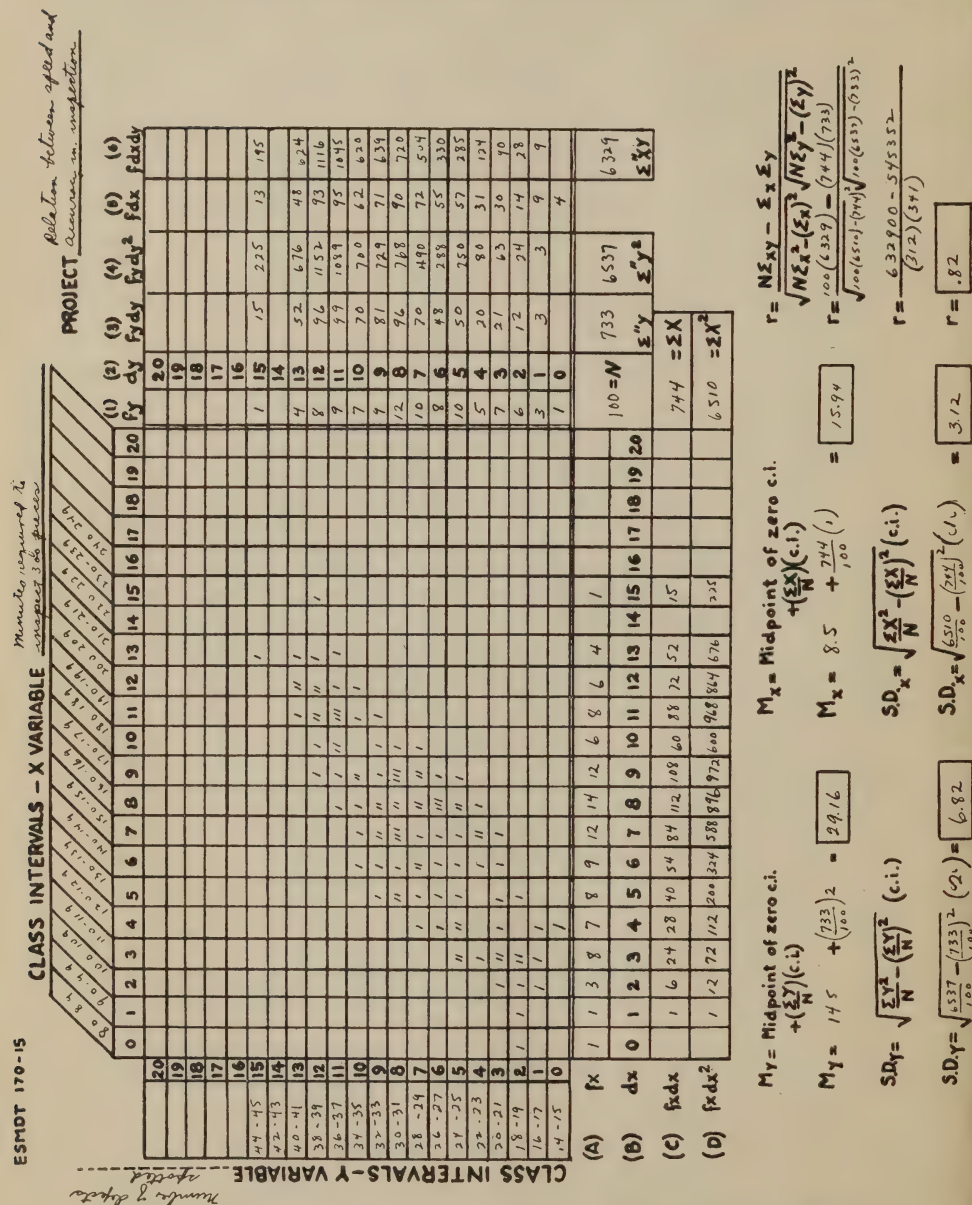 ESMDT 170-15
CLASS INTERVALS – X VARIABLE minutes required to inspect 300 pieces
PROJECT Relation between speed and accuracy in inspection
80 89
90-99
100 109
110-119
120 129
130-139
140-149
150-159
160-169
170-179
180 189
190-199
200 209
210-219
220 229
230-239
240 249
0 1 2 3 4 5 6 7 8 9 10 11 12 13 14 15 16 17 18 19 20
(1) fy (2) dy (3) fydy (4) fydy² (5) fdx (6) fdxdy
CLASS INTERVALS–Y VARIABLE
number of defects spotted
20 20
19 19
18 18
17 17
16 16
44-45 15 1 1 15 15 225 13 195
42-43 14
40-41 13 1 11 1 4 13 52 676 48 624
38-39 12 1 1 11 11 1 1 8 12 96 1152 93 1116
36-37 11 9 11 99 1089 95 1045
34-35 10 7 10 70 700 62 620
32-33 9 9 9 81 729 71 639
30-31 8 12 8 96 768 90 720
28-29 7 10 7 70 490 72 504
26-27 6 8 6 48 288 55 330
24-25 5 10 5 50 250 57 285
22-23 4 5 4 20 80 31 124
20-21 3 7 3 21 63 30 90
18-19 2 6 2 12 24 14 28
16-17 1 3 1 3 3 9 9
14-15 0 1 0 4
(A) fx 1 1 3 8 7 8 9 12 14 12 6 8 6 4 1 100=N 733 6537 6329
(B) dx 0 1 2 3 4 5 6 7 8 9 10 11 12 13 14 15 16 17 18 19 20 Σ"y Σ"y² Σ"xy
(C) fxdx 1 6 24 28 40 54 84 112 108 60 88 72 52 15 744 =ΣX
(D) fxdx² 1 12 72 112 200 324 588 896 972 600 968 864 676 225 6510 =ΣX²
My= Midpoint of zero c.i.
+(ΣY/N)(c.i.)
My= 14.5 +(733/100)2 = 29.16
S.D.y= √ΣY²/N -(ΣY/N)² (c.i.)
S.D.y= √6537/100 -(733/100)² (2) = 6.82
Mx= Midpoint of zero c.i.
+(ΣX/N)(c.i.)
Mx= 8.5 + 744/100 (1) = 15.94
S.D.x= √ΣX²/N -(ΣX/N)² (c.i.)
S.D.x= √6510/100 -(744/100)² (1) = 3.12
r= NΣxy – Σx Σy / √NΣx²-(Σx)² √NΣy²-(Σy)²
r= 100(6329) – (744)(733) / √100(6510)-(744)² √100(6537)-(733)²
r= 632900 – 545352 / (312)(341)
r= .82